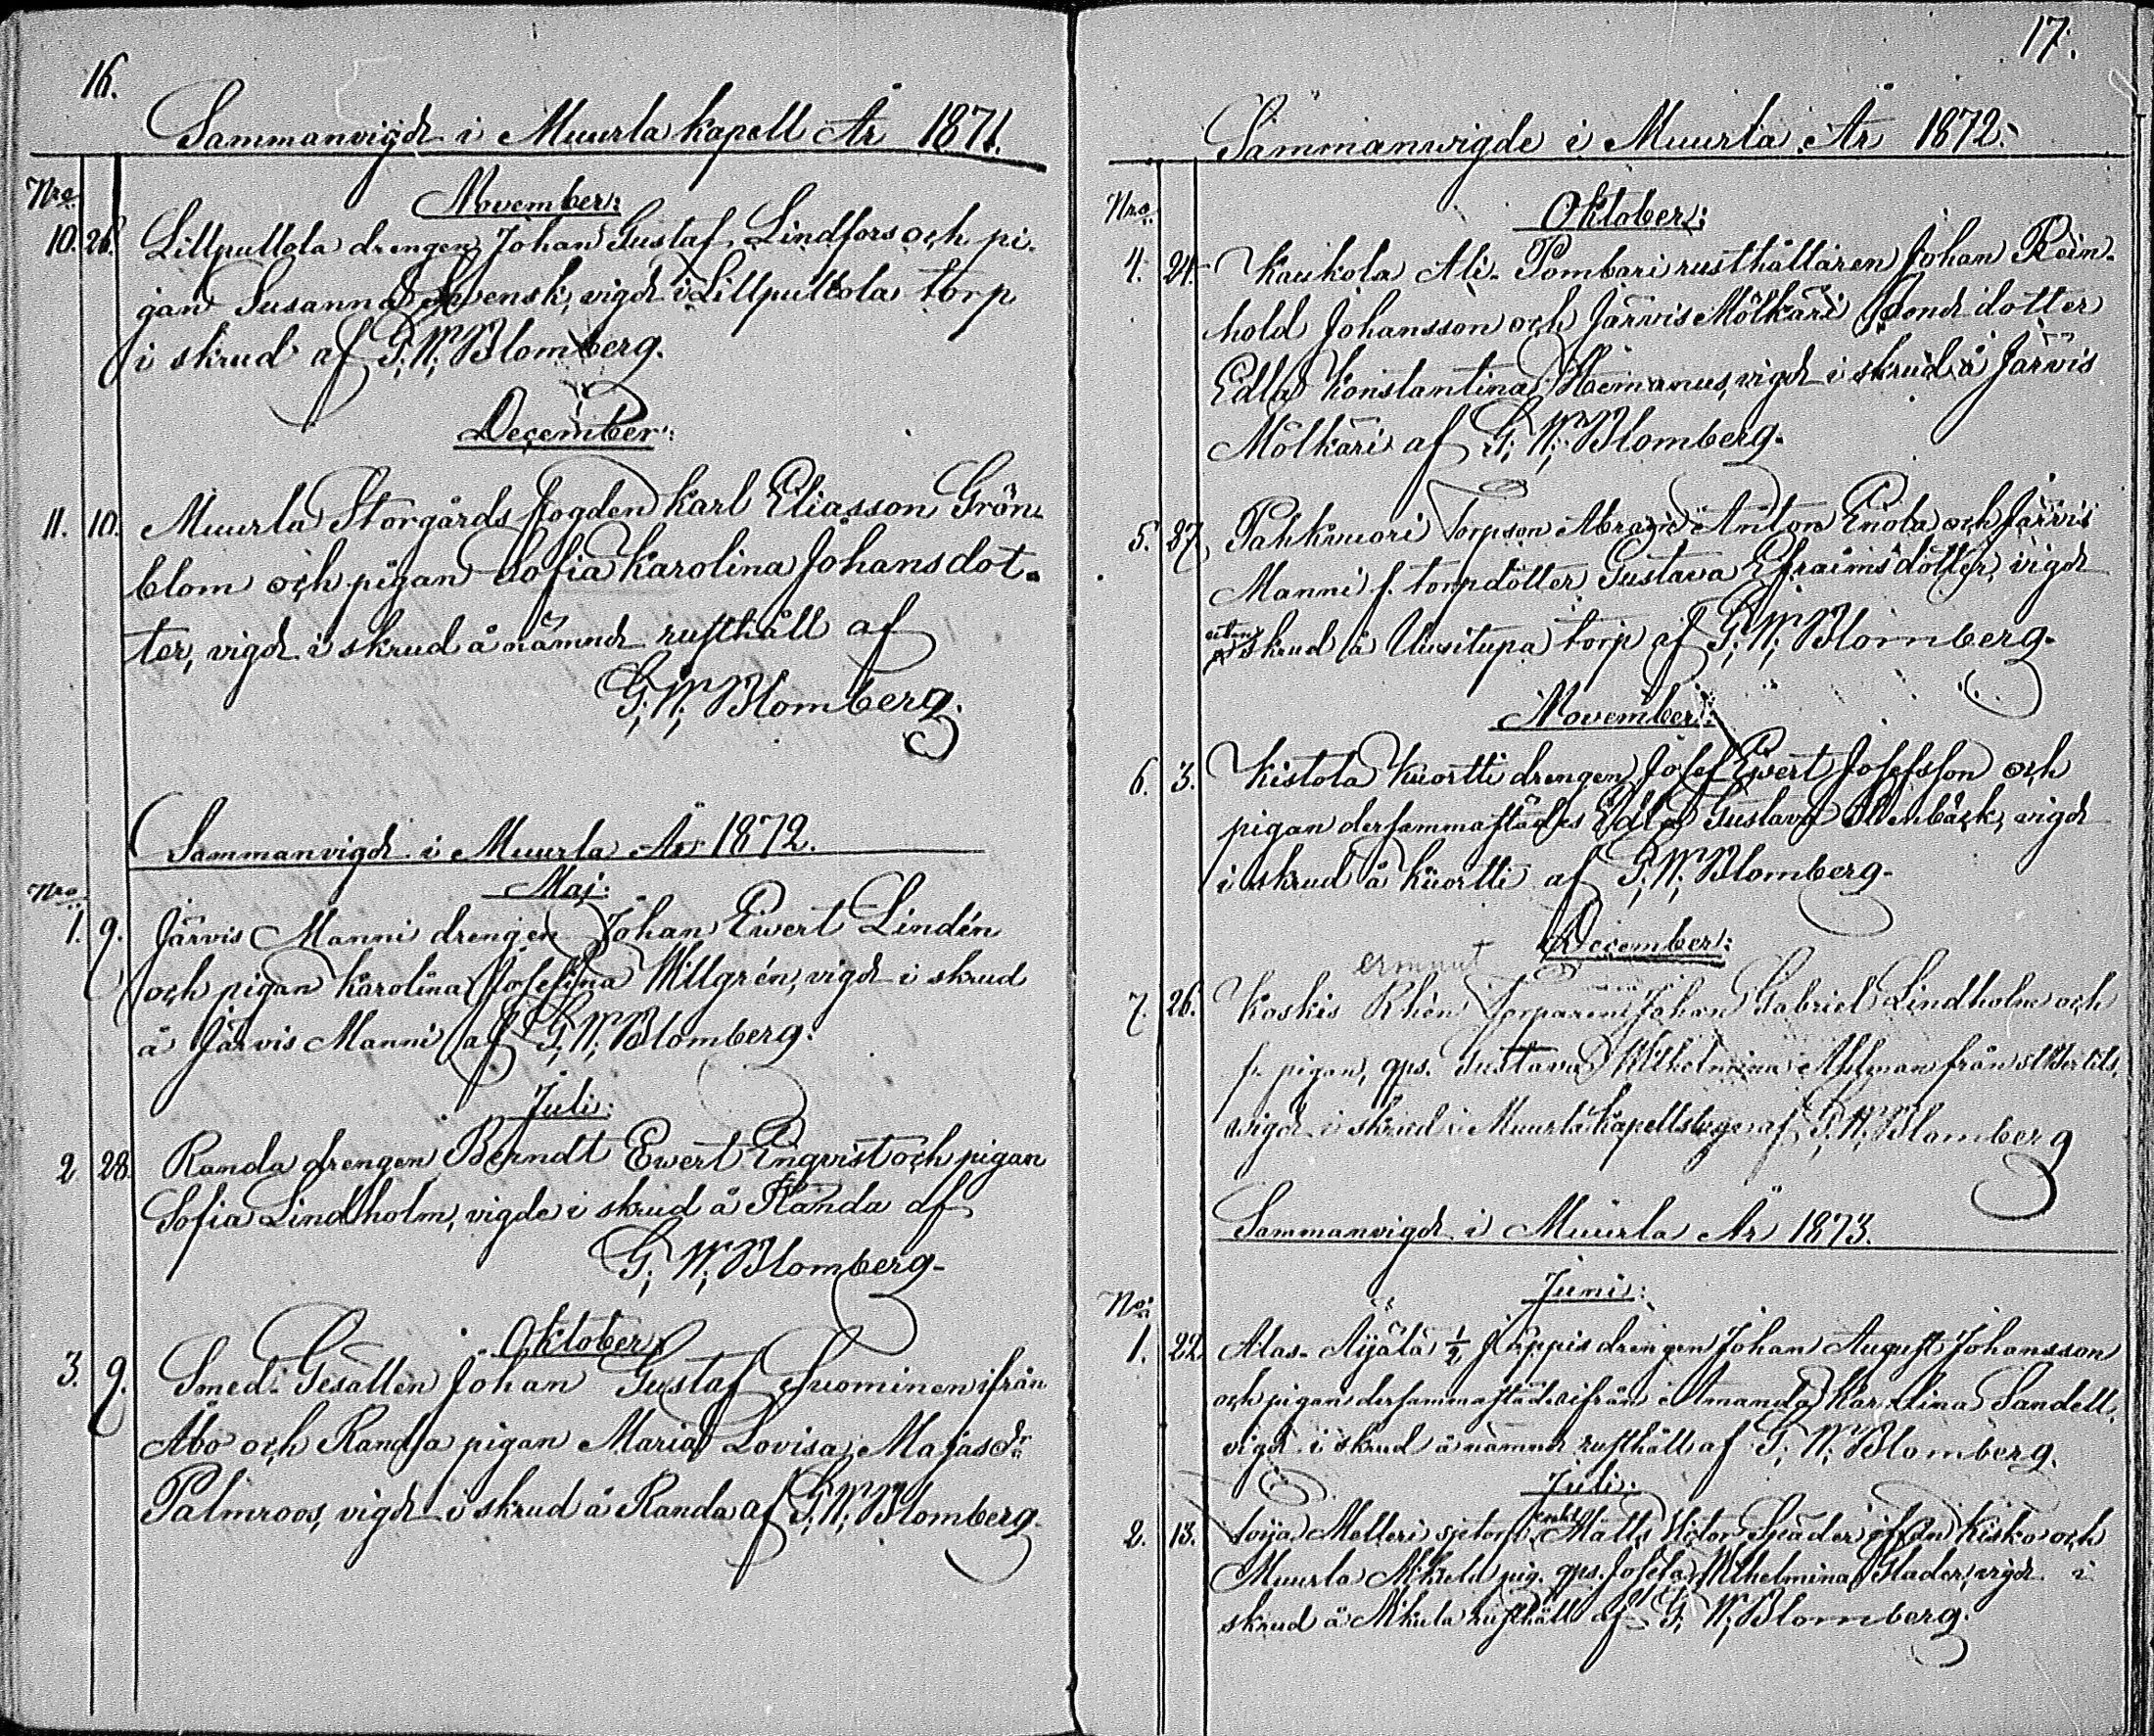 16.
Sammanvigde i Muurla kapell År 1871.
Nro
November:
10. 26. Lillpullola drengen Johan Gustaf Lindfors och pi-
gan Susanna Svensk, vigde i Lillpullola torp
i skrud af G. W. Blomberg.
December:
11. 10. Muurla Storgårds fogden Karl Eliasson Grön-
blom och pigan Sofia Karolina Johansdot-
ter, vigde i skrud å nämnde rusthåll af
G. W. Blomberg.
Sammanvigde i Muurla År 1872.
Nro
Maj:
1. 9. Järvis Manni drengen Johan Ewert Lindén
och pigan Karolina Josefina Willgrén, vigde i skrud
å Järvis Manni af G. W. Blomberg.
Juli:
2 28. Randa drengen Berndt Ewert Enqvist och pigan
Sofia Lindholm, vigde i skrud å Randa af
G. W. Blomberg.
Oktober:
3. 9. Smed-Gesällen Johan Gustaf Suominen ifrån
Åbo och Randa pigan Maria Lovisa Majasdr
Palmroos, vigde i skrud å Randa af G. W. Blomberg.
17.
Sammanvigde i Muurla År 1872.
Nro
Oktober:
4. 24. Kaukola Ali-Pombari rusthållaren Johan Rein-
hold Johansson och Järvis Mölkäri dotter
Edla Konstantina Heimanus, vigde i skrud å Järvis
Mölkäri af G. W. Blomberg.
5. 27. Pahkvuori torpson Anton Enola och Järvis
Manni f. torpdotter Gustava Efraimsdotter, vigde
utan skrud å Uusitupa torp af G. W. Blomberg.
November:
6. 3. Kistola Kuortti drengen Josef Ewert Josefsson och
pigan dersammastädes Edla Gustava Ahlenbäck, vigde
i skrud å Kuortti af G. W. Blomberg.
December:
7. 26. Koskis Rhen torparen Johan Gabriel Lindholm och
f. pigan, qps. Gustava Wilhelmina Ahlman från
vigde i skrud i Muurla kapellstuga af G. W. Blomberg
Sammanvigde i Muurla År 1873.
Juni:
No
1. 22. Alas-Äijälä 1/2 Jäppis drengen Johan August Johansson
och pigan dersammastädes ifrån Amanda Karolina Sandell,
vigde i skrud å nämnde rusthåll af G. W. Blomberg.
Juli:
2. 13. Toija Melleri enkl. Matts Victor Späder ifrån Kisko och
Muurla Mikula pig. qps. Josefa Wilhelmina Glader, vigde i
skrud å Mikula rusthåll af G. W. Blomberg.